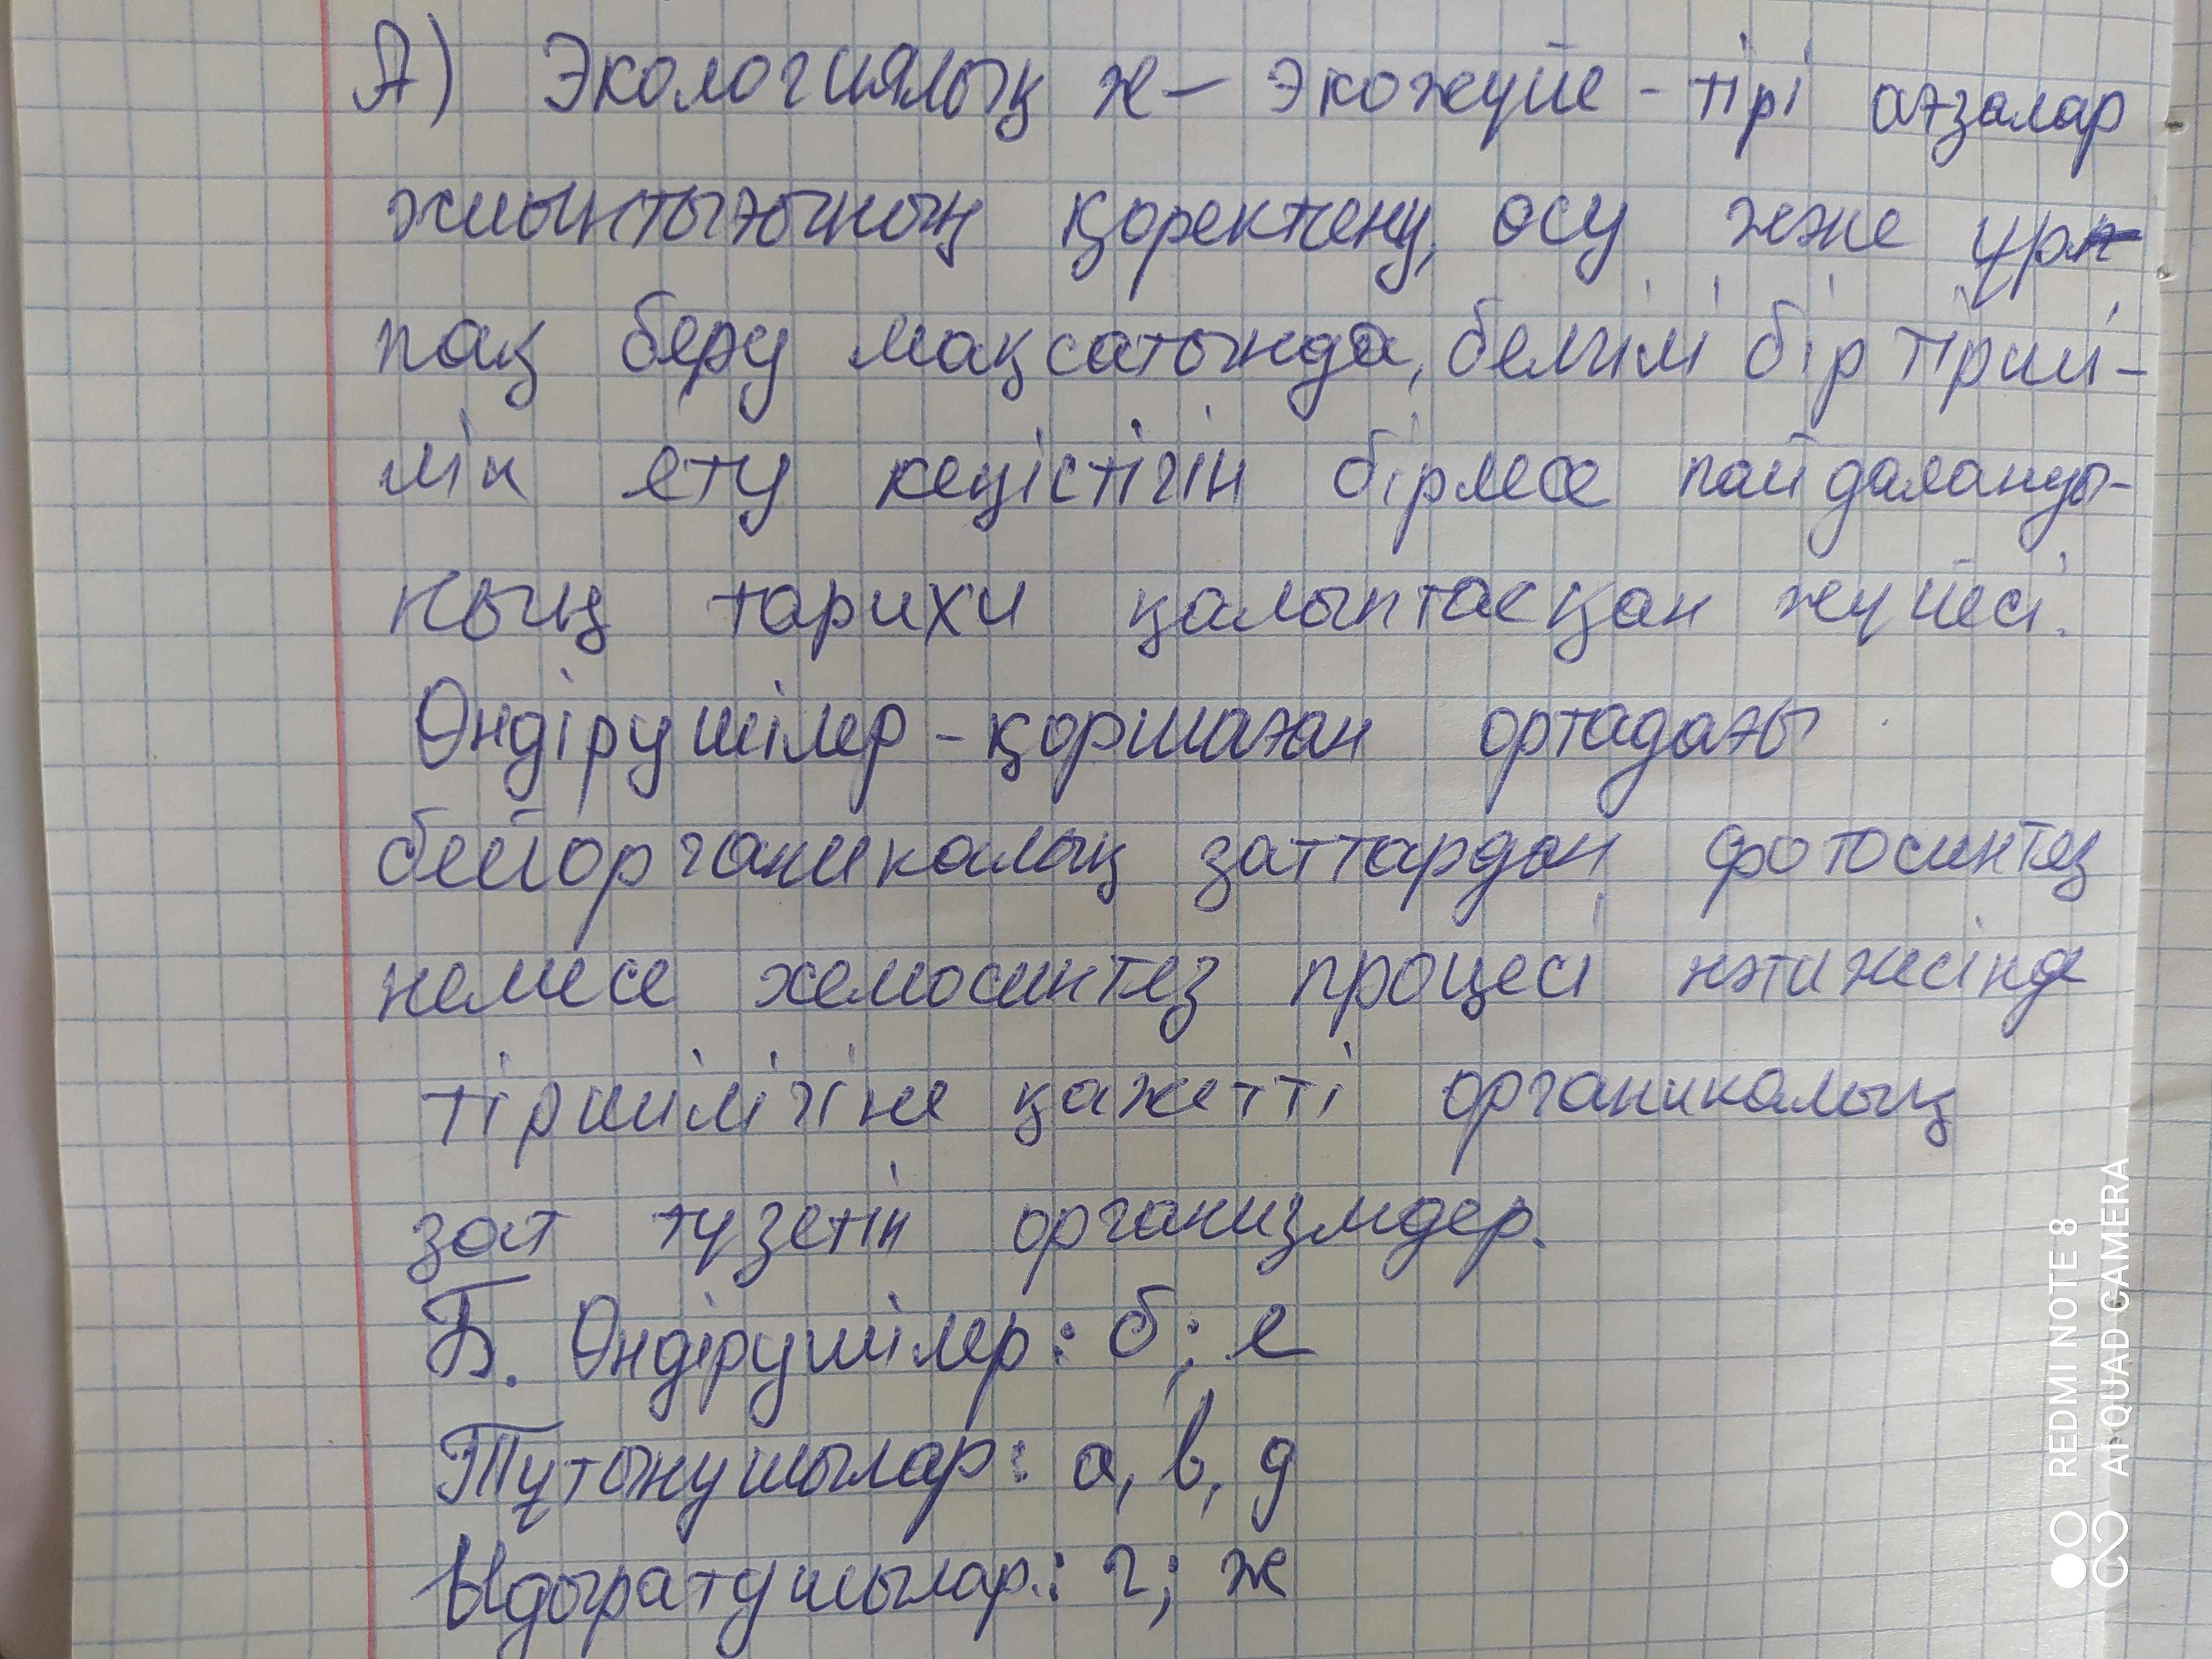 А) Экологиялық ж – экожүйе - тірі ағзалар
жиынтығының қоректену, өсу және ұрп-
пақ беру мақсатында, белгілі бір тірші-
лік ету кеңістігін бірлесе пайдалануы-
ның тарихи қалыптасқан жүйесі.
Өндірушілер - қоршаған ортадағы
бейорганикалық заттардан фотосинтез
немесе хемосинтез процесі нәтижесінде
тіршілігіне қажетті органикалық
зат түзетін организмдер.
Б. Өндірушілер: б; е
Тұтынушылар: а, в, д
Ыдыратушылар.: г; ж
REDMI NOTE 8
AI QUAD CAMERA